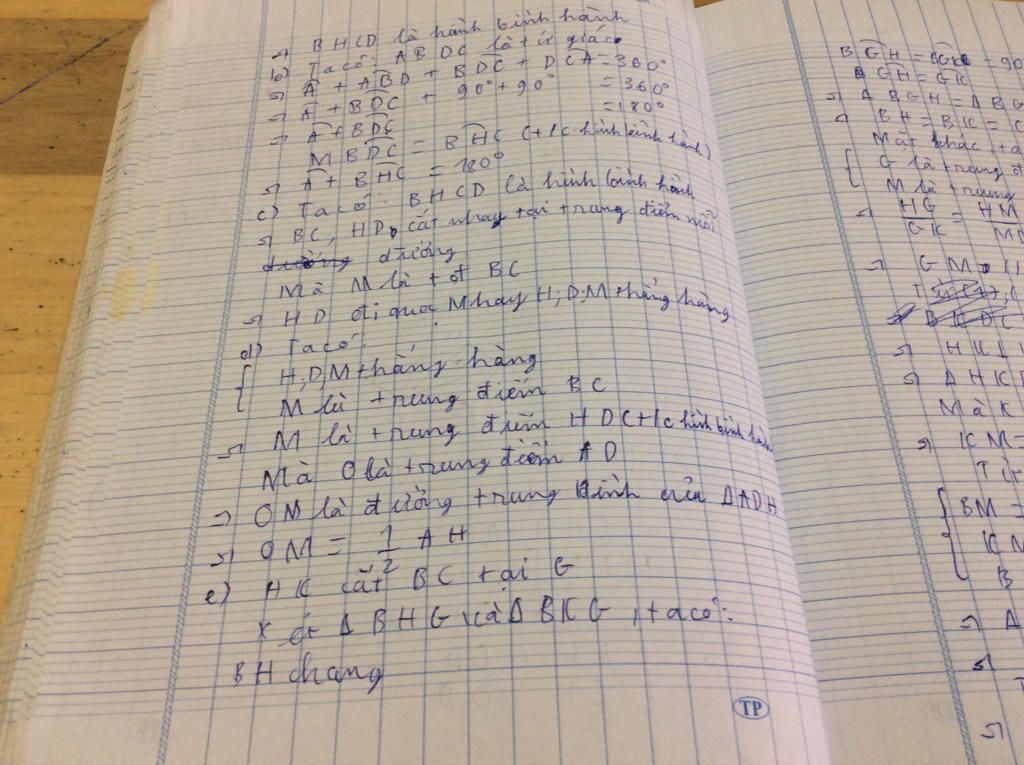 => BHCD là hành bình hành
b) Ta có: ABDC là tứ giác
=> Â + ABD + BDC + DCA = 360°
=> Â + BDC + 90° + 90° = 360°
=> Â + BDC = 180°
Mà BDC = BHC (t/c hình bình hành)
=> Â + BHC = 180°
c) Ta có: BHCD là hình bình hành
=> BC, HD cắt nhau tại trung điểm mỗi
đường đường
Mà M là tđ BC
=> HD đi qua M hay H, D, M thẳng hàng
d) Ta có:
{ H, D, M thẳng hàng
M là trung điểm BC
=> M là trung điểm HD (t/c hình bình hành
Mà O là trung điểm AD
=> OM là đường trung bình của ΔADH
=> OM = 1/2 AH
e) HK cắt BC tại G
Xét Δ BHG và Δ BKG, ta có:
BH chang
TP
BGH = BGK = 90
GH = GK
=> Δ BGH = Δ BG
=> BH = BK = C
Mặt khác, ta
{ G là trung đ
M là trung
=> HG/GK = HM/M
=> GM
=> HK
=> Δ HK
Mà K
=> KM =
Từ
{ BM =
KM
B
=> A
=>
=>